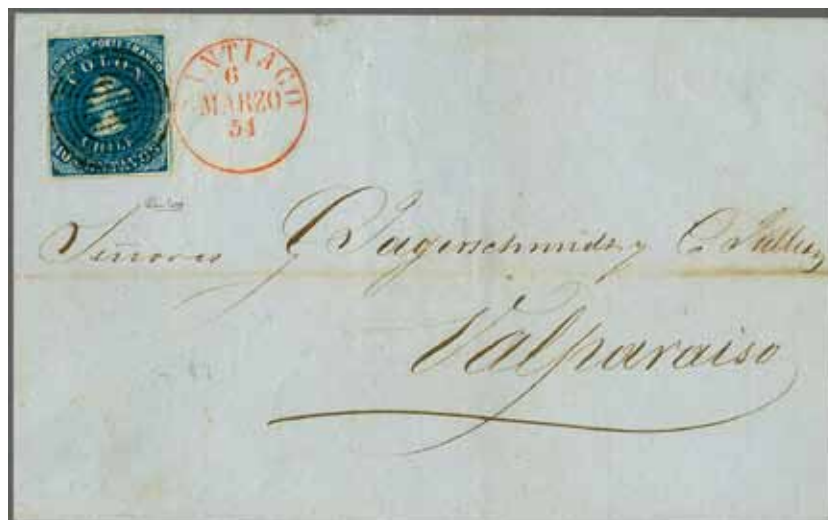 CORREOS PORTE FRANCO
COLON
CHILE
10 CENTAVOS
ANTIAGO
6
MARZO
54
Señores
Jagerschmidt y C.
Valparaiso